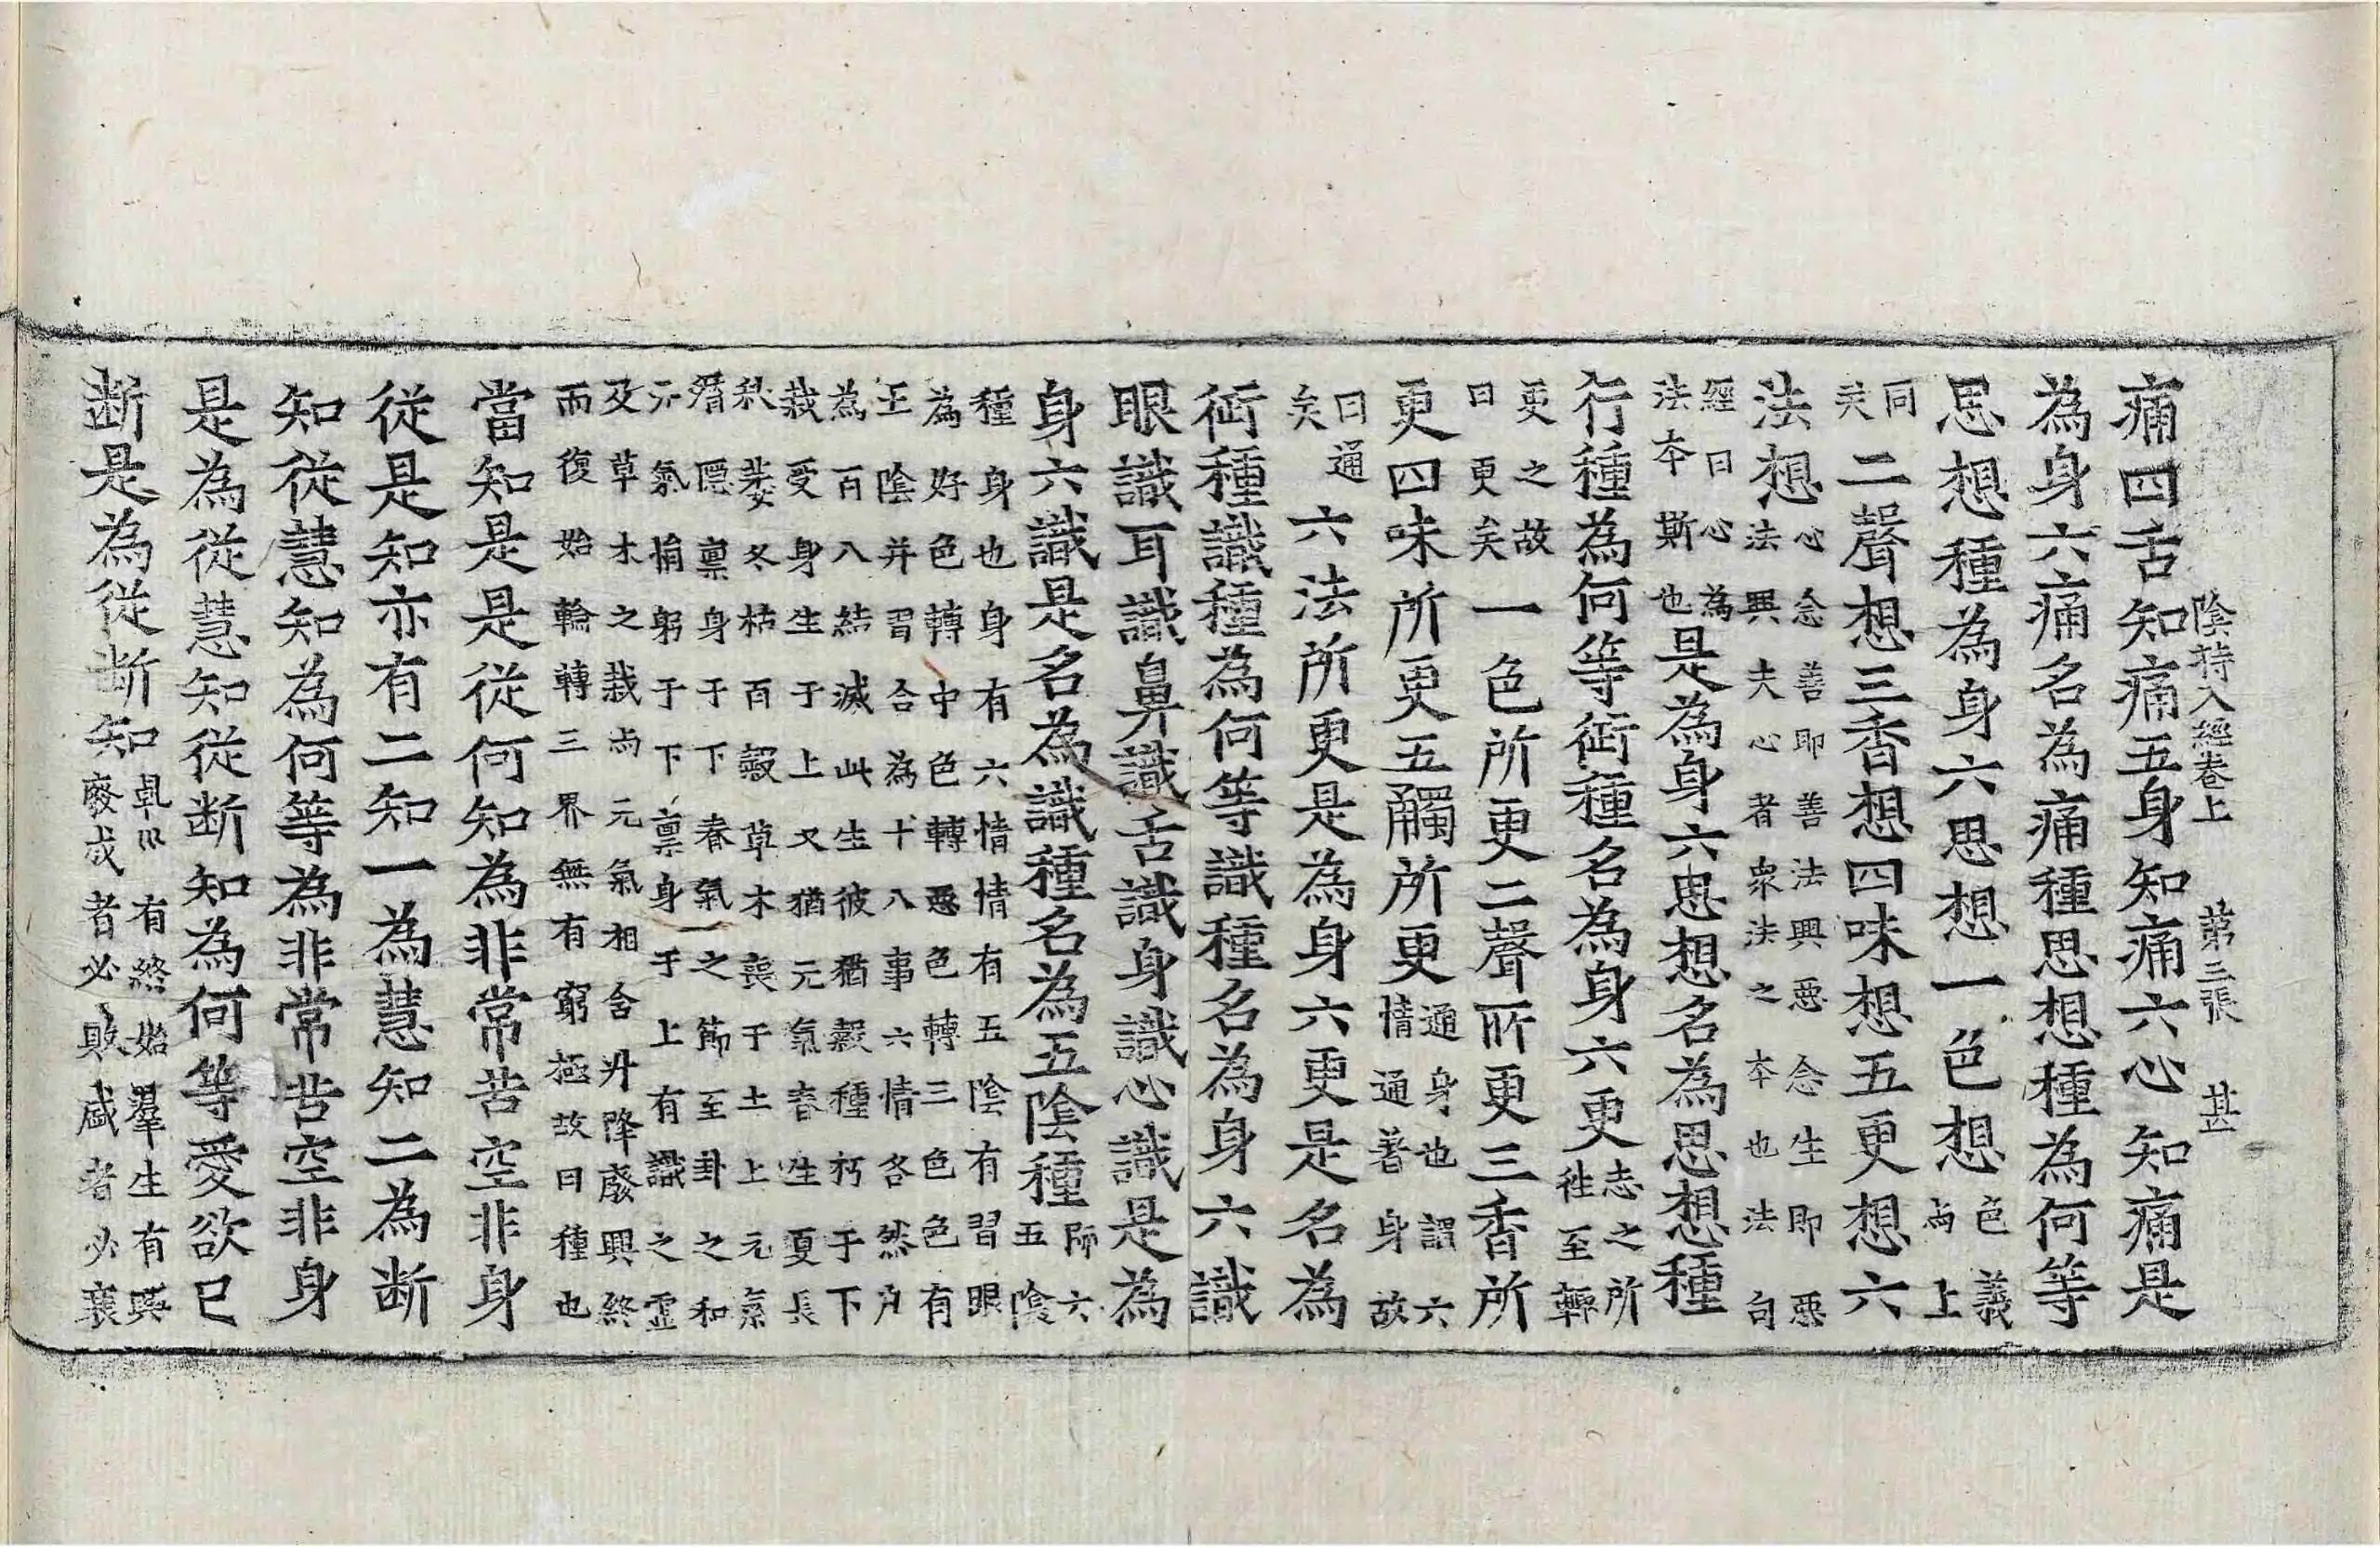 陰持入經卷上 第三張 甚
痛四舌知痛五身知痛六心知痛是
為身六痛名為痛種思想種為何等
思想種為身六思想一色想色義
尚上
同
矣二聲想三香想四味想五更想六
法想心念善即善法興惡念生即惡
法興夫心者衆法之本也法句
經曰心為
法本斯也是為身六思想名為思想種
行種為何等衍種名為身六更志之所
往至轉
更之故
曰更矣一色所更二聲所更三香所
更四味所更五觸所更通身也謂六
情通著身故
曰通
矣六法所更是為身六更是名為
衍種識種為何等識種名為身六識
眼識耳識鼻識舌識身識心識是為
身六識是名為識種名為五陰種師六
五陰
種身也身有六情情有五陰有習眼
為好色轉中色轉惡色轉三色色有
五陰并習合為十八事六情各然凡
為百八結滅此生彼猶穀種朽于下
栽受身生于上又猶元氣春生夏長
秋萎冬枯百穀草木喪于土上元氣
潛隱稟身于下春氣之節至卦之和
元氣悁躬于下稟身于上有識之靈
及草木之栽尚元氣相含升降廢興終
而復始輪轉三界無有窮極故曰種也
當知是是從何知為非常苦空非身
從是知亦有二知一為慧知二為断
知從慧知為何等為非常苦空非身
是為從慧知從断知為何等愛欲已
断是為從断知乹巛有終始羣生有興
廢成者必敗盛者必衰